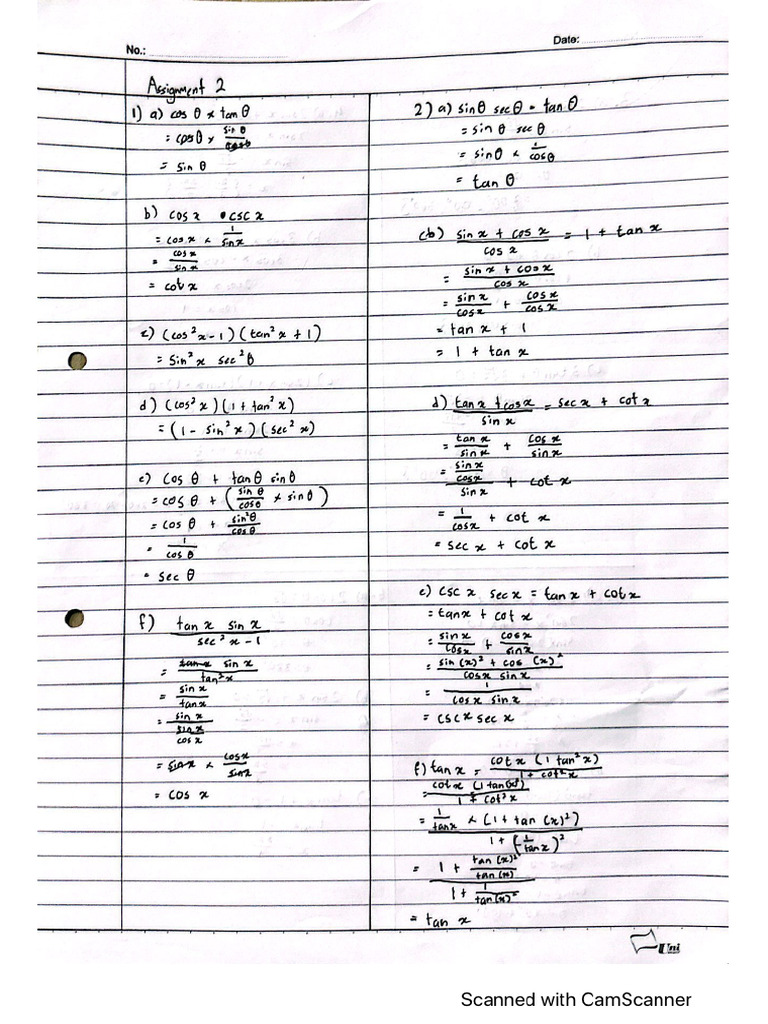 No.:
Date:
Assignment 2
1) a) cos θ × tan θ
= cos θ × sin θ / cos θ
= sin θ
b) cos x • csc x
= cos x × 1 / sin x
= cos x / sin x
= cot x
c) (cos² x - 1) (tan² x + 1)
= sin² x sec² θ
d) (cos² x) (1 + tan² x)
= (1 - sin² x) (sec² x)
e) cos θ + tan θ sin θ
= cos θ + (sin θ / cos θ × sin θ)
= cos θ + sin² θ / cos θ
= 1 / cos θ
= sec θ
f) tan x sin x / sec² x - 1
= tan x sin x / tan² x
= sin x / tan x
= sin x / sin x / cos x
= sin x × cos x / sin x
= cos x
2) a) sin θ sec θ = tan θ
= sin θ sec θ
= sin θ × 1 / cos θ
= tan θ
(b) sin x + cos x / cos x = 1 + tan x
= sin x + cos x / cos x
= sin x / cos x + cos x / cos x
= tan x + 1
= 1 + tan x
d) tan x + cos x / sin x = sec x + cot x
= tan x / sin x + cos x / sin x
= sin x / cos x / sin x + cot x
= 1 / cos x + cot x
= sec x + cot x
e) csc x sec x = tan x + cot x
= tan x + cot x
= sin x / cos x + cos x / sin x
= sin (x)² + cos (x)² / cos x sin x
= 1 / cos x sin x
= csc x sec x
f) tan x = cot x (1 tan² x) / 1 + cot² x
= cot x (1 tan(x)²) / 1 + cot² x
= 1 / tan x × (1 + tan (x)²) / 1 + (1 / tan x)²
= 1 + tan (x)² / tan (x) / 1 + 1 / tan (x)²
= tan x
Scanned with CamScanner